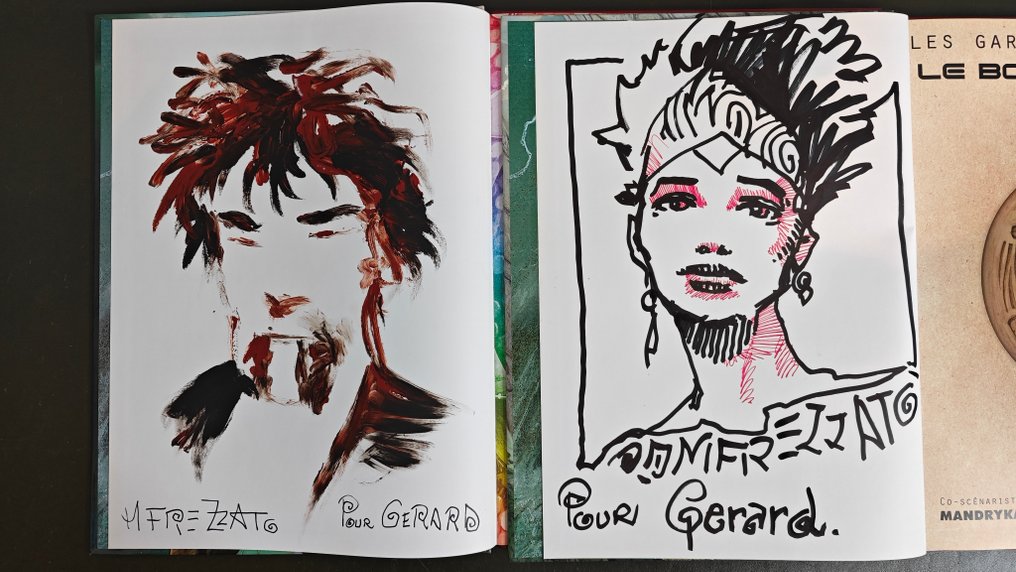 M FREZZATO
POUR GERARD
MFREZZATO
Pour Gerard.
LES GAR
LE BO
CO-SCÉNARIST
MANDRYKA